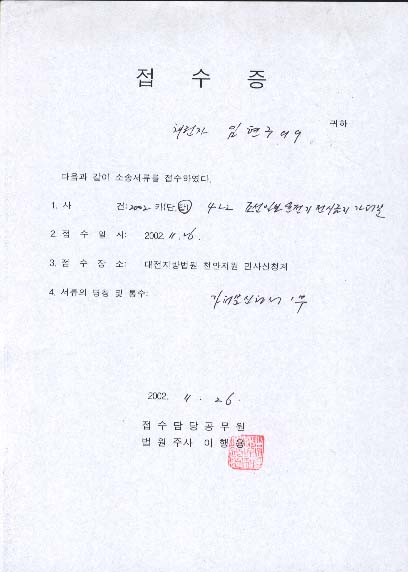 접 수 증
채권자 임 편 구 외9 귀하
다음과 같이 소송서류를 접수하였다.
1. 사 건: 2002 카(단,합) 442 조선일보 윤전기 전시금지 가처분
2. 접 수 일 시: 2002. 11. 26.
3. 접 수 장 소: 대전지방법원 천안지원 민사신청계
4. 서류의 명칭 및 통수: 가처분신청서 1부
2002. 11. 26.
접 수 담 당 공 무 원
법 원 주 사 이 행